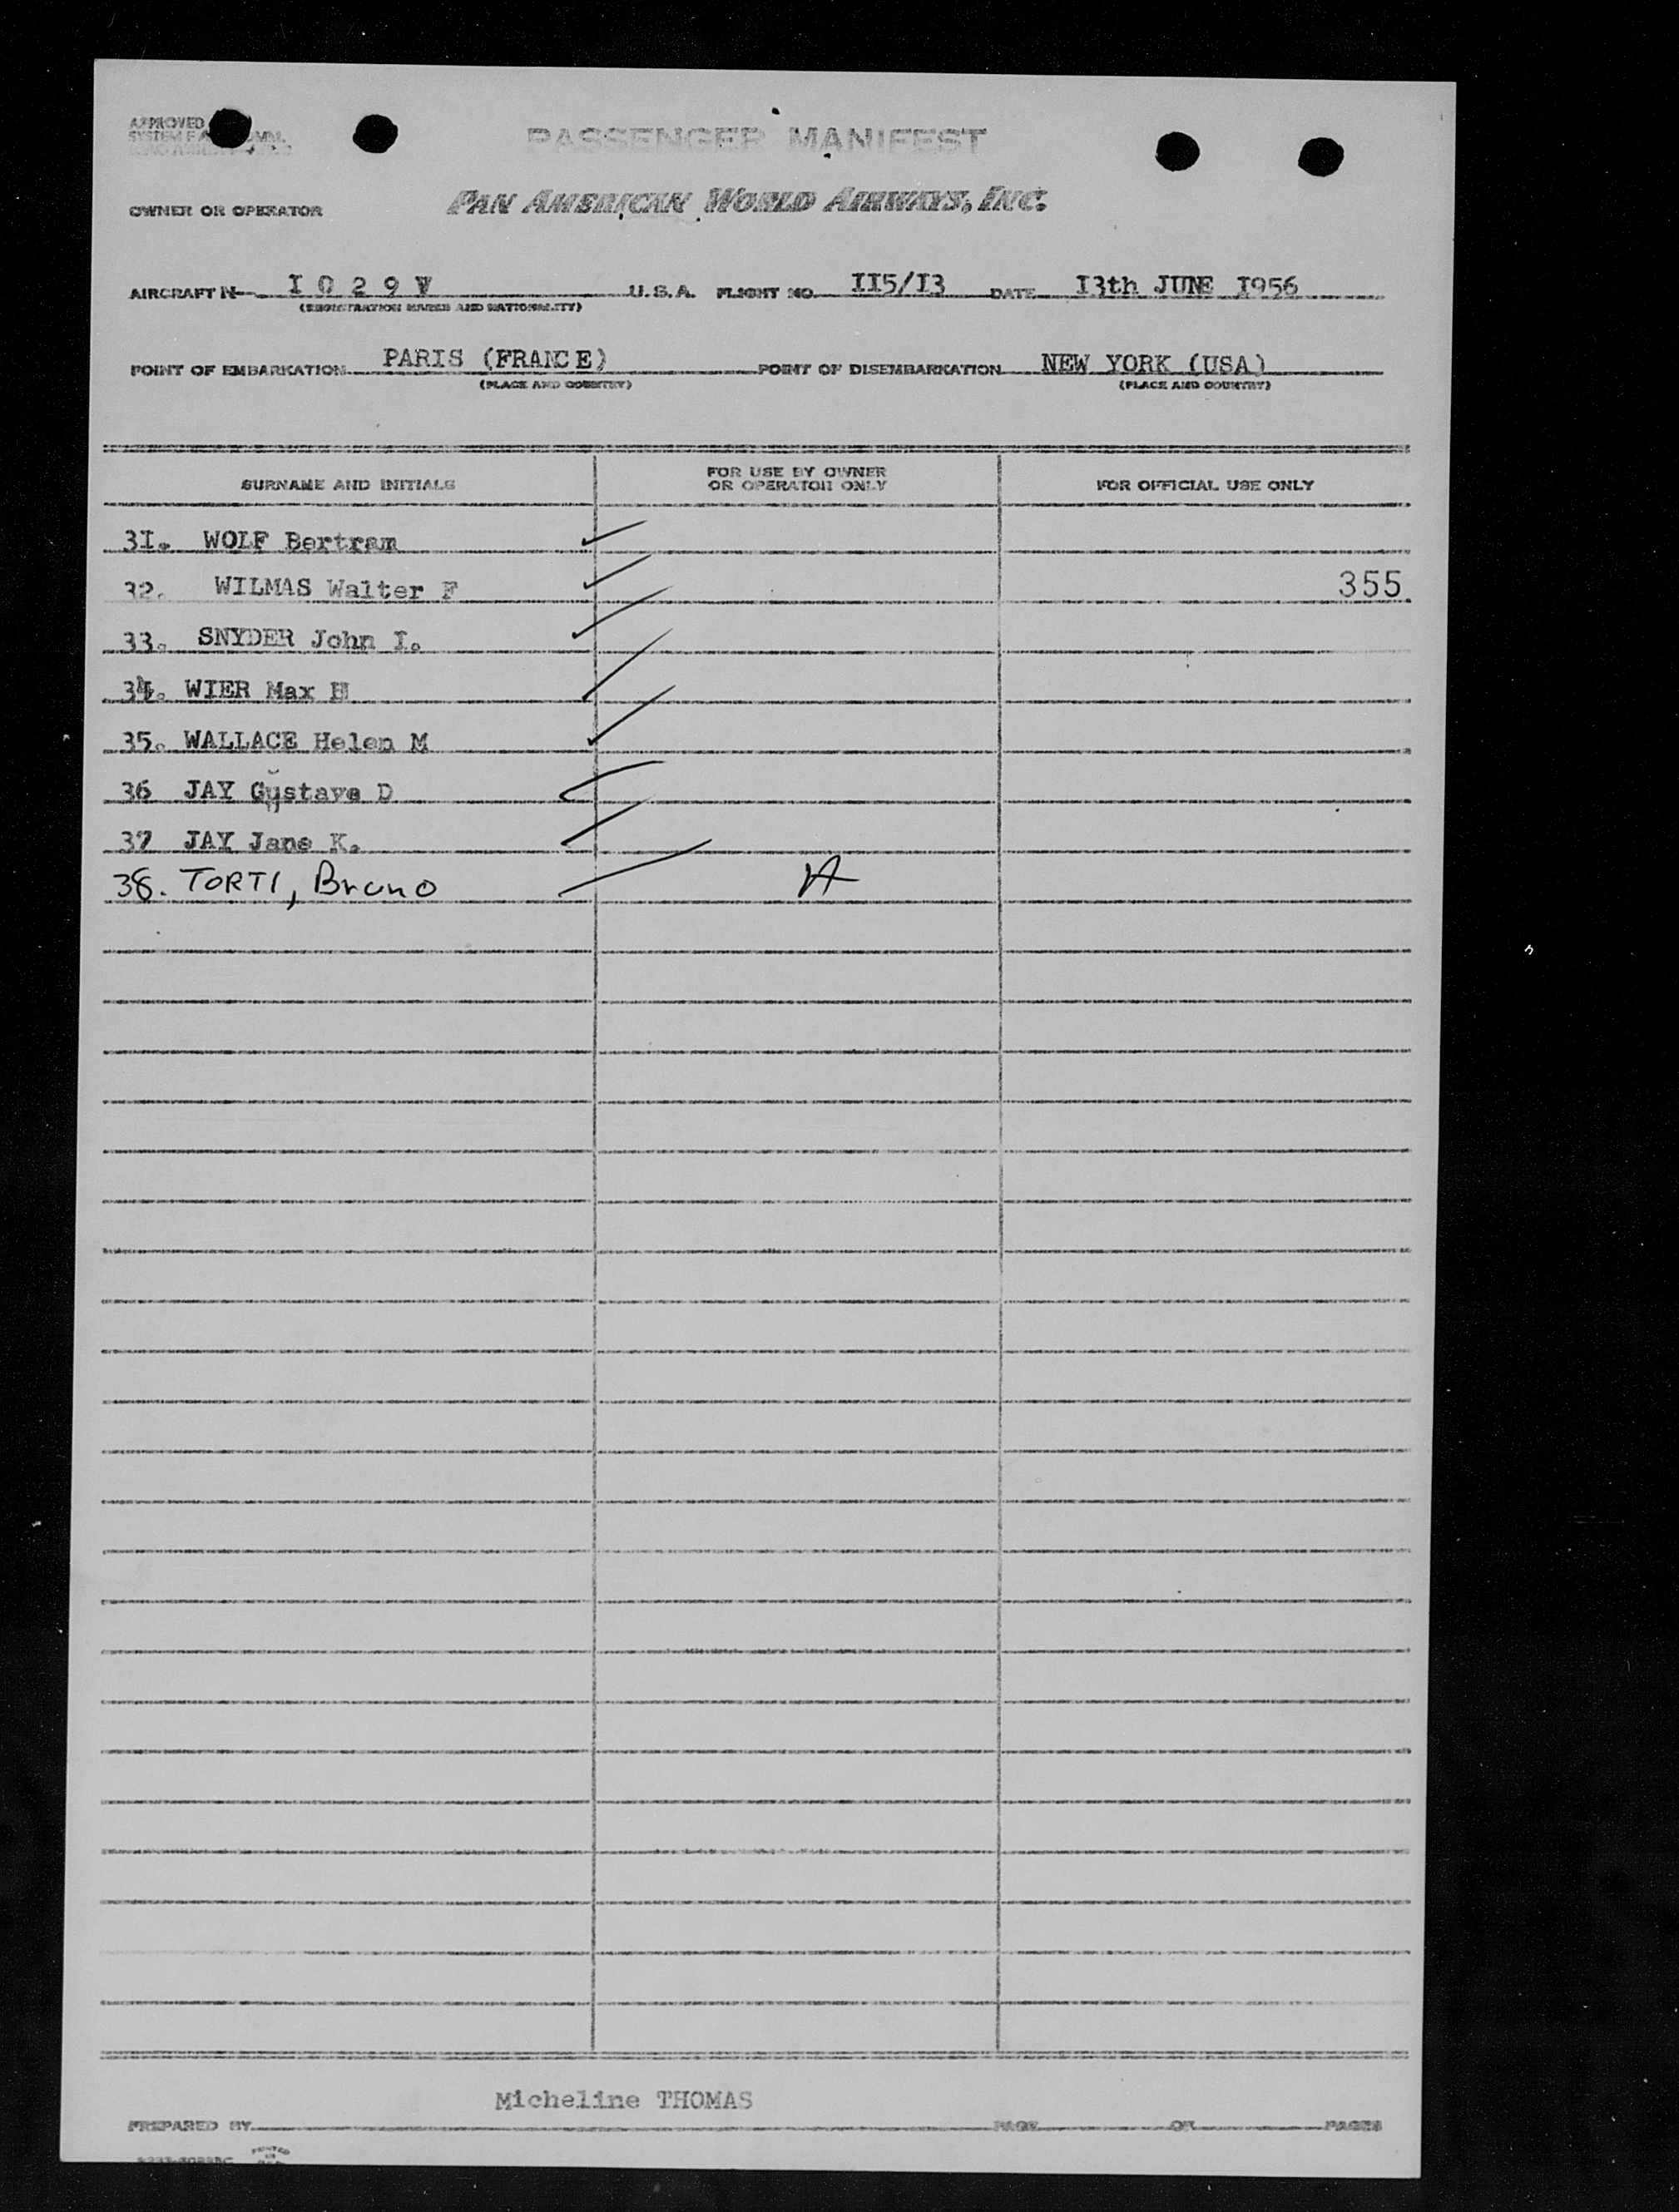 APPROVED
PASSENGER MANIFEST
OWNER OR OPERATOR PAN AMERICAN WORLD AIRWAYS, INC.
AIRCRAFT N I 0 2 9 V U.S.A. FLIGHT NO. II5/I3 DATE I3th JUNE I956
(REGISTRATION MARKS AND NATIONALITY)
POINT OF EMBARKATION PARIS (FRANCE) POINT OF DISEMBARKATION NEW YORK (USA)
(PLACE AND COUNTRY) (PLACE AND COUNTRY)
SURNAME AND INITIALS FOR USE BY OWNER OR OPERATOR ONLY FOR OFFICIAL USE ONLY
3I. WOLF Bertram
32. WILMAS Walter F 355
33. SNYDER John I.
34. WIER Max H
35. WALLACE Helen M
36 JAY Gustave D
37 JAY Jane K.
38. TORTI, Bruno A
Micheline THOMAS
PREPARED BY PAGE OF PAGES
PRINTED
IN